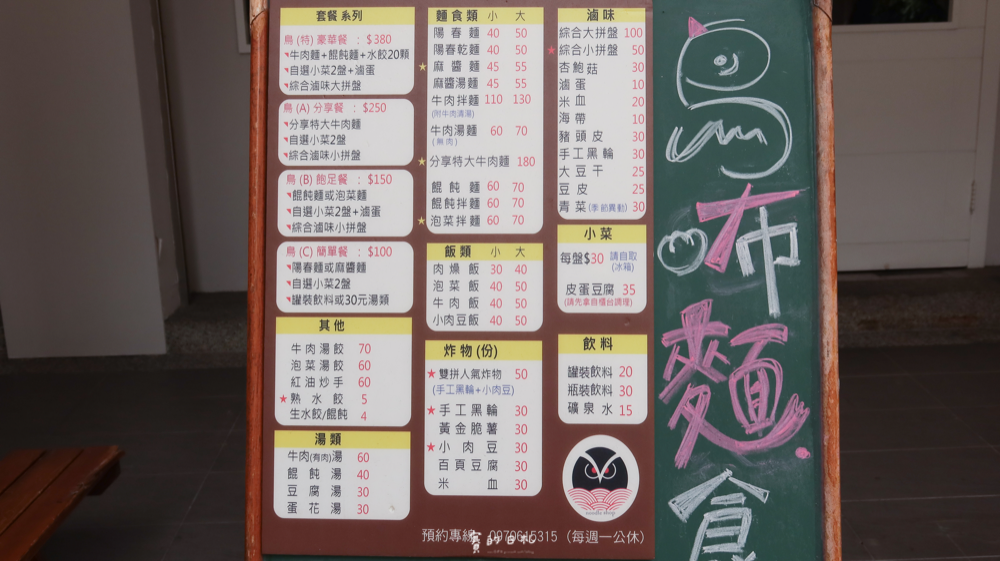 套餐系列
鳥(特)豪華餐 : $380
牛肉麵+餛飩麵+水餃20顆
自選小菜2盤+滷蛋
綜合滷味大拼盤
鳥(A)分享餐 : $250
分享特大牛肉麵
自選小菜2盤
綜合滷味小拼盤
鳥(B)飽足餐 : $150
餛飩麵或泡菜麵
自選小菜2盤+滷蛋
綜合滷味小拼盤
鳥(C)簡單餐 : $100
陽春麵或麻醬麵
自選小菜2盤
罐裝飲料或30元湯類
其他
牛肉湯餃 70
泡菜湯餃 60
紅油炒手 60
★熟水餃 5
生水餃/餛飩 4
湯類
牛肉(有肉)湯 60
餛飩湯 40
豆腐湯 30
蛋花湯 30
麵食類 小 大
陽春麵 40 50
陽春乾麵 40 50
★麻醬麵 45 55
麻醬湯麵 45 55
牛肉拌麵 110 130
(附牛肉清湯)
牛肉湯麵 60 70
(無肉)
★分享特大牛肉麵 180
餛飩麵 60 70
餛飩拌麵 60 70
★泡菜拌麵 60 70
飯類 小 大
肉燥飯 30 40
泡菜飯 40 50
牛肉飯 40 50
小肉豆飯 40 50
炸物(份)
★雙拼人氣炸物 50
(手工黑輪+小肉豆)
★手工黑輪 30
黃金脆薯 30
★小肉豆 30
百頁豆腐 30
米血 30
滷味
綜合大拼盤 100
★綜合小拼盤 50
杏鮑菇 30
滷蛋 10
米血 20
海帶 10
豬頭皮 30
手工黑輪 30
大豆干 25
豆皮 25
青菜(季節異動) 30
小菜
每盤$30 請自取
(冰箱)
皮蛋豆腐 35
(請先拿自櫃台調理)
飲料
罐裝飲料 20
瓶裝飲料 30
礦泉水 15
預約專線 0970615315 (每週一公休)
鳥
布
麵
食